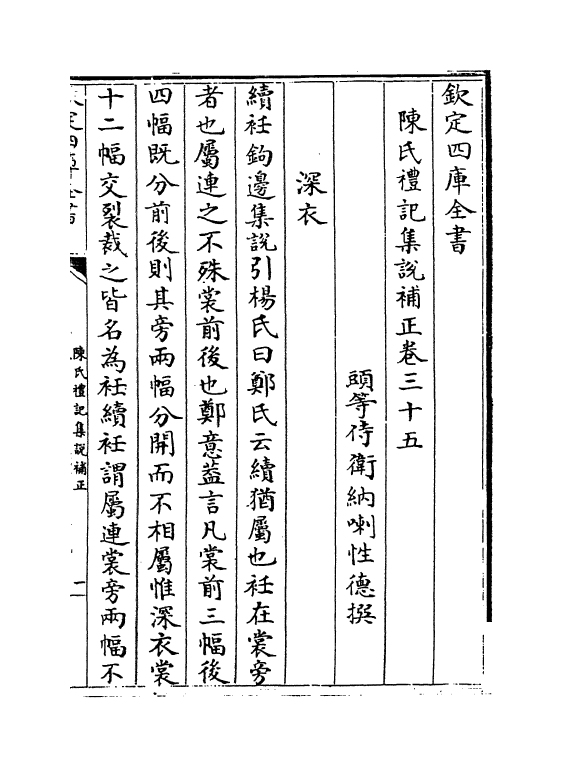 欽定四庫全書
陳氏禮記集說補正卷三十五
頭等侍衛納喇性德撰
深衣
續衽鉤邊集說引楊氏曰鄭氏云續猶屬也衽在裳旁
者也屬連之不殊裳前後也鄭意葢言凡裳前三幅後
四幅既分前後則其旁兩幅分開而不相屬惟深衣裳
十二幅交裂裁之皆名為衽續衽謂屬連裳旁兩幅不
欽定四庫全書
陳氏禮記集說補正